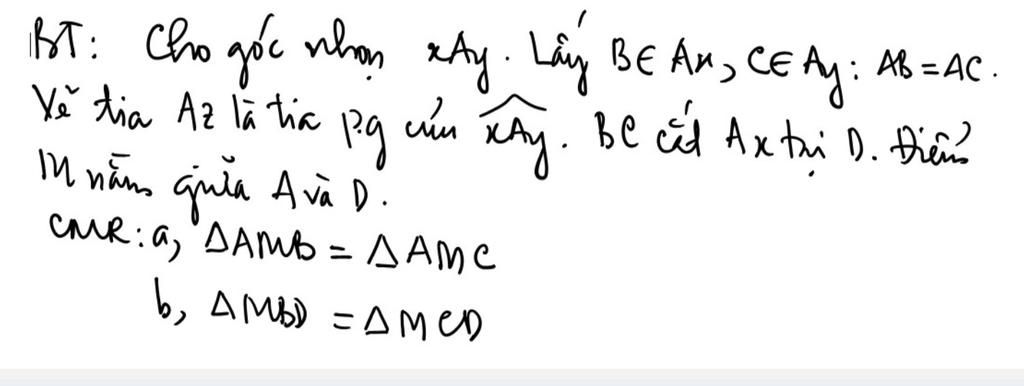 BT: Cho góc nhọn xAy. Lấy B∈Ax, C∈Ay: AB=AC.
Vẽ tia Az là tia p.g của xAy. BC cắt Ax tại D. Điểm
M nằm giữa A và D.
CMR: a, ΔAMB = ΔAMC
b, ΔMBD = ΔMCD